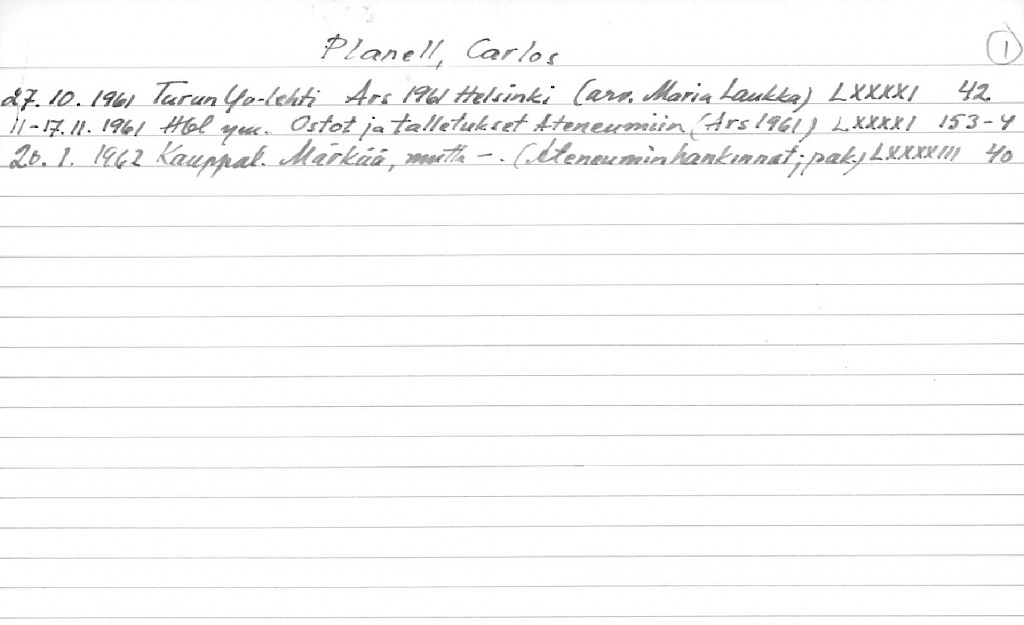 Planell, Carlos 1
27.10.1961 Turun Yo-lehti Ars 1961 Helsinki (arv. Maria Laukka) LXXXXI 42
11-17.11.1961 Hbl ym. Ostot ja talletukset Ateneumiin (Ars 1961) LXXXXI 153-4
20.1.1962 Kauppal. Märkää, mutta -. (Ateneumin hankinnat; pak.) LXXXXIII 40